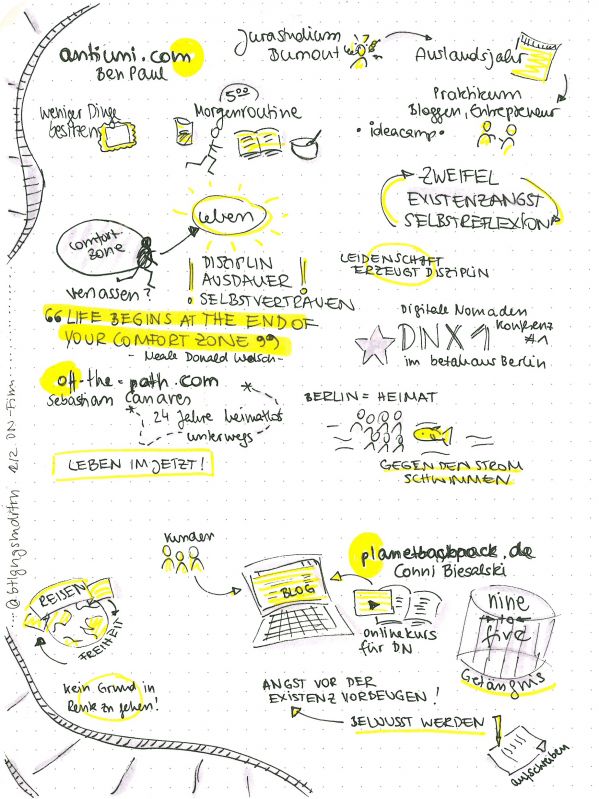 antiuni.com
Ben Paul
Jurastudium
Burnout
Auslandsjahr
Praktikum
Bloggen, Entrepreneur
• ideacamp •
weniger Dinge
besitzen
5:00
Morgenroutine
ZWEIFEL
EXISTENZANGST
SELBSTREFLEXION
leben
comfort
zone
verlassen?
! DISZIPLIN !
AUSDAUER
SELBSTVERTRAUEN
LEIDENSCHAFT
ERZEUGT DISZIPLIN
“LIFE BEGINS AT THE END OF
YOUR COMFORT ZONE”
- Neale Donald Walsch -
Digitale Nomaden
DNX1 Konferenz
#1
im betahaus Berlin
off-the-path.com
Sebastian Canaves
24 Jahre heimatlos
unterwegs
LEBEN IM JETZT!
BERLIN = HEIMAT
GEGEN DEN STROM
SCHWIMMEN
2/2 DN-Film
Kunden
BLOG
planetbackpack.de
Conni Biesalski
onlinekurs
für DN
nine
to
five
Gefängnis
REISEN
FREIHEIT
kein Grund in
Rente zu gehen!
ANGST VOR DER
EXISTENZ VORBEUGEN!
BEWUSST WERDEN!
aufschreiben